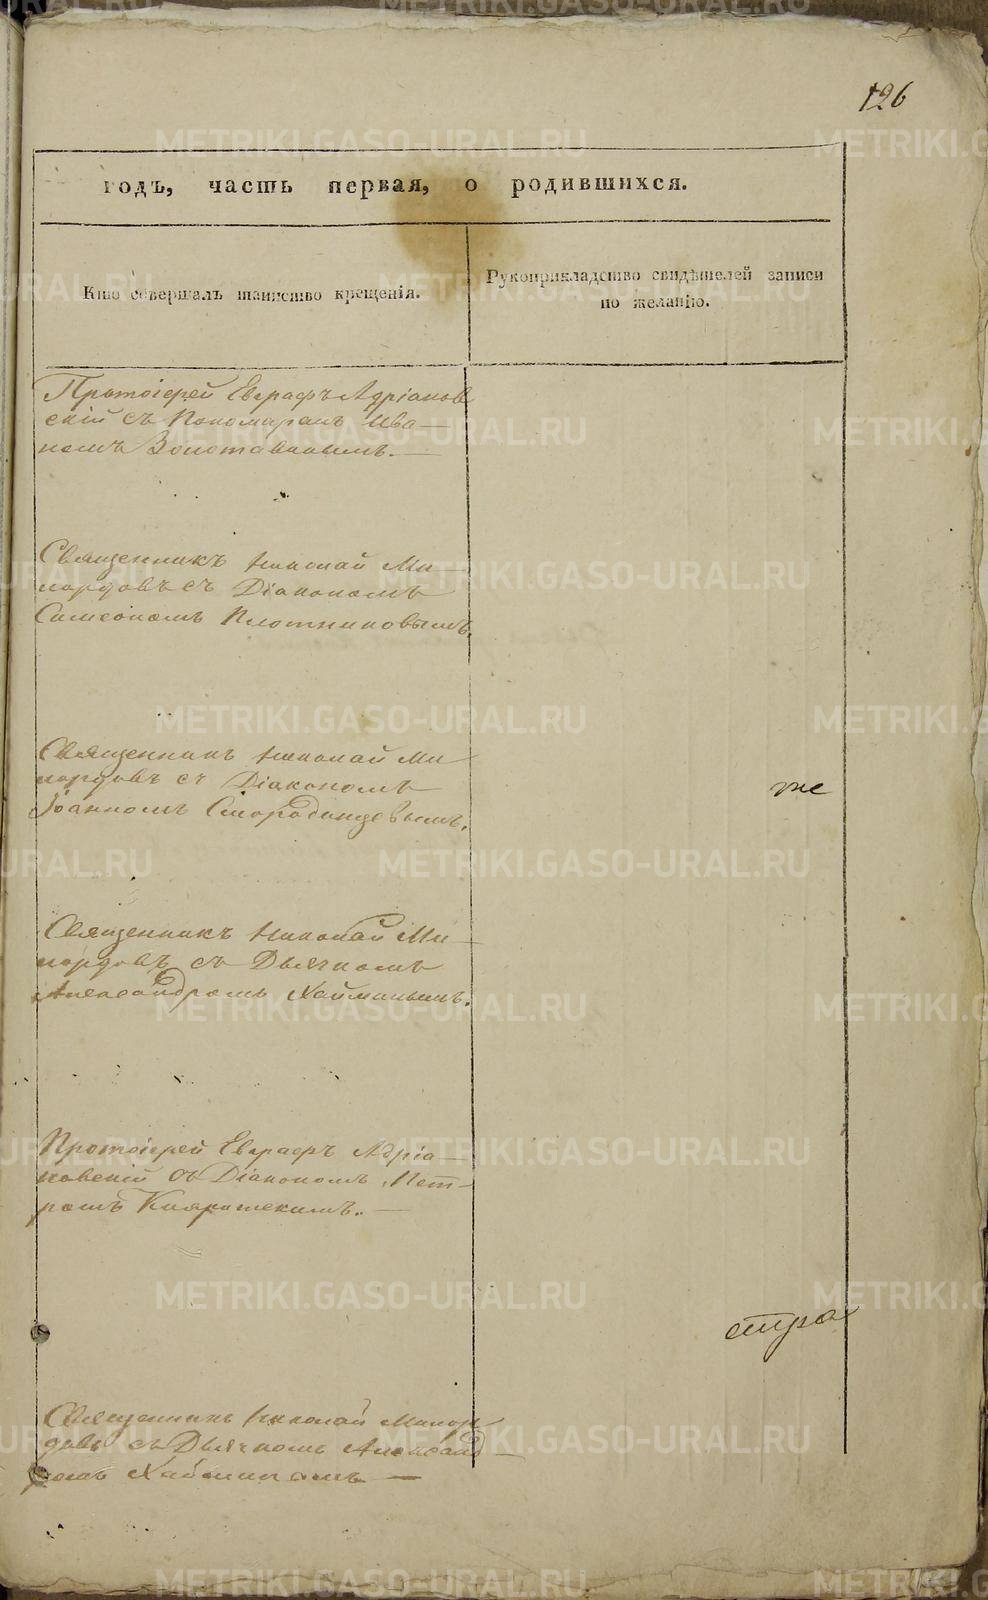 126
годъ, часть первая, о родившихся.
Кто совершалъ таинство крещенія.
Рукоприкладство свидѣтелей записи
по желанію.
Протоіерей Евграфъ Адріанов
скій съ Пономаремъ Ива—
номъ Золотавинымъ.—
Священникъ Николай Ми—
нордовъ съ Діакономъ
Симеономъ Плотниковымъ.
Священникъ Николай Ми
нордовъ съ Діакономъ
Іоанномъ Смородинцевымъ.
же
Священникъ Николай Ми—
нордовъ съ Дьячкомъ
Александромъ Хайминымъ.
Протоіерей Евграфъ Адріа—
новскій съ Діакономъ Пет—
ромъ
стра
Священникъ Николай Минор
довъ съ Дьячкомъ Александ—
ромъ —
METRIKI.GASO-URAL.RU